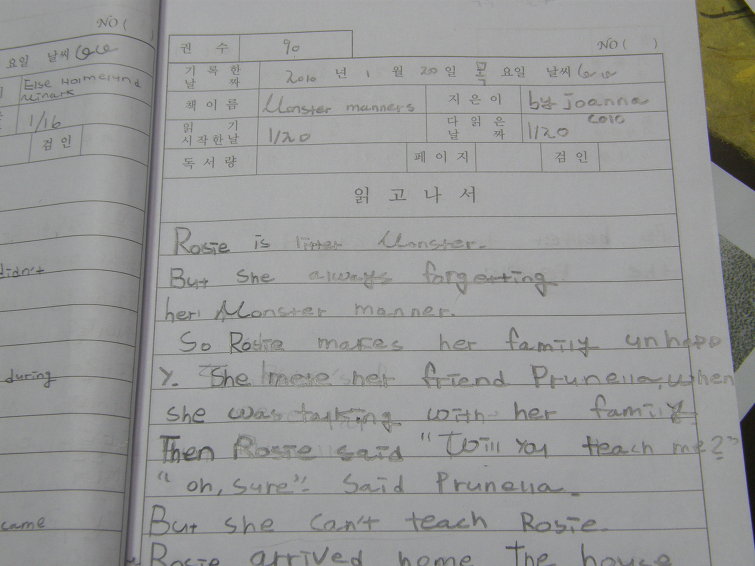 NO (
요일 날씨
Else Holmelund
Minark
1/16
검 인
didn't
during
came
권 수 90 NO ( )
기 록 한 날 짜 2010 년 1 월 20 일 목 요일 날씨
책 이 름 Monster manners 지 은 이 by joanna cole
읽 기 시작한날 1/20 다 읽 은 날 짜 1/20
독 서 량 페 이 지 검 인
읽 고 나 서
Rosie is litter Monster.
But she always forgetting
her Monster manner.
So Rosie makes her family unhapp
y. She mere her friend Prunella, when
she was talking with her family
Then Rosie said "Will you teach me?"
"oh, sure". Said Prunella.
But she can't teach Rosie.
Rosie arrived home the house